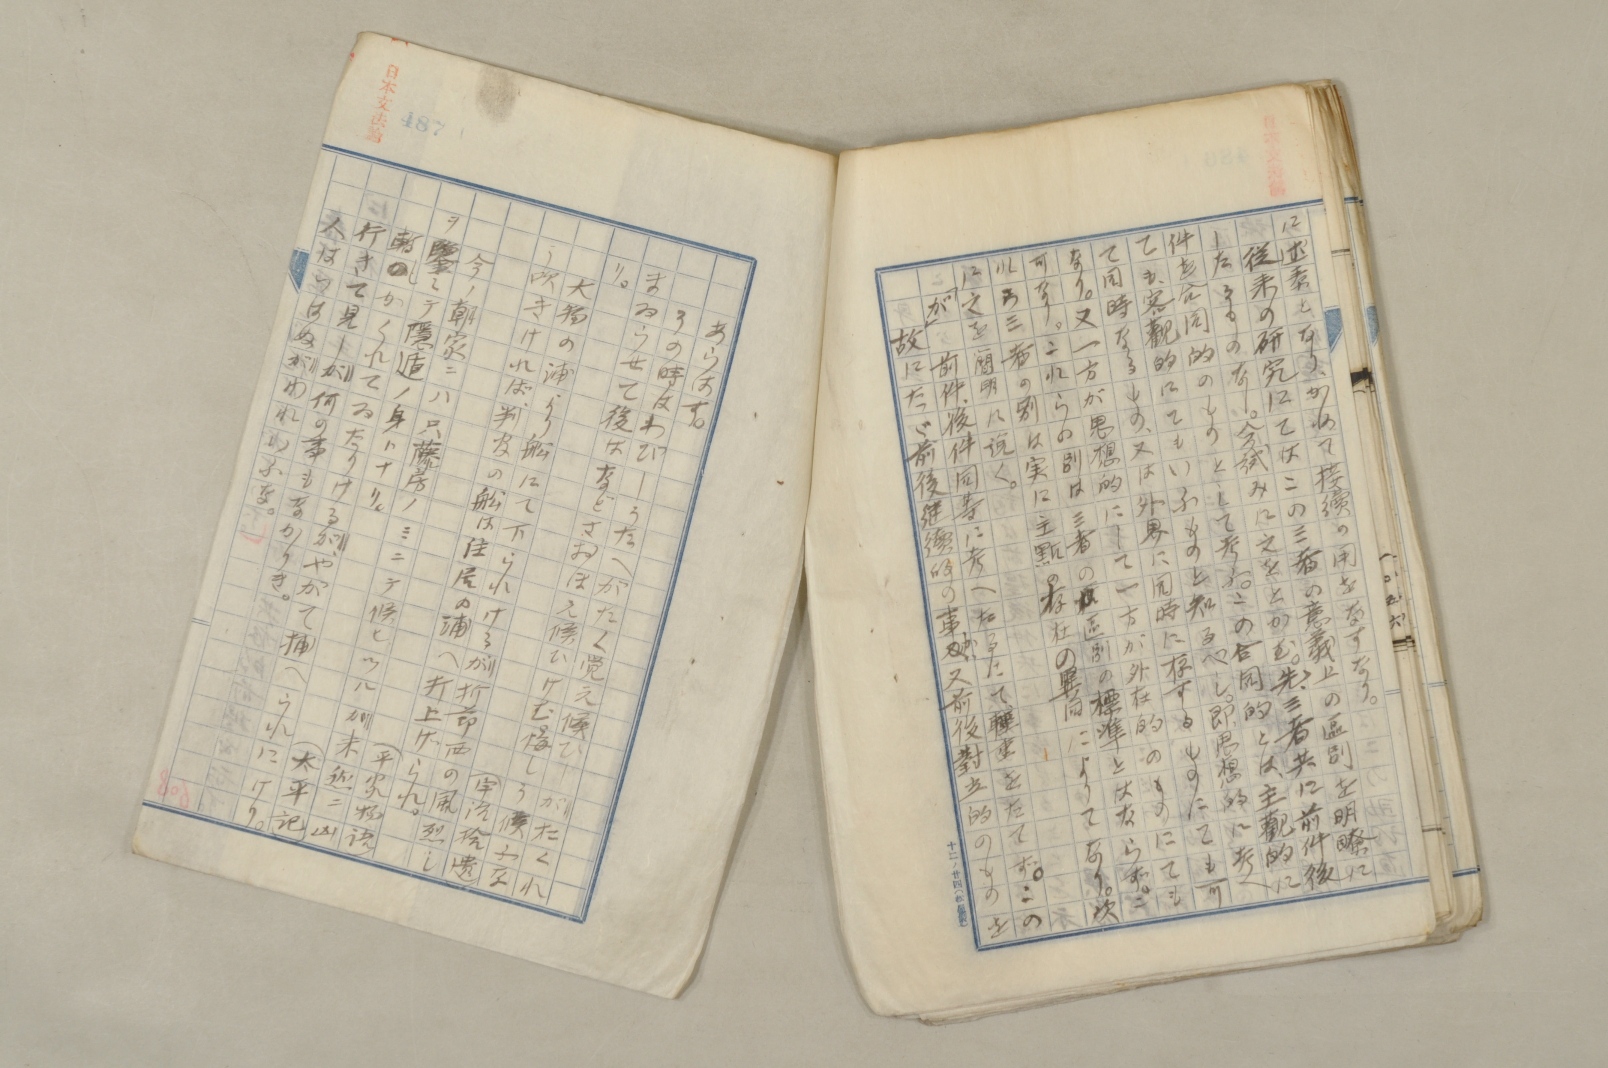 に述素となり、かねて接續の用をなすなり。
従来の研究にてはこの三者の意義上の區別を明瞭に
したるものなし。今試みに之をとかむ。先、三者共に前件後
件を合同的のものとして考ふ。この合同的とは、主觀的に
ても、客觀的にてもいふものと知るべし。即思想的に考へ
て同時なるもの、又は外界に同時に存するものにても可
なり。又一方が思想的にして一方が外在的のものにても
可なり。これらの別は三者の區別の標準とはならず。こ
れら三者の別は実に主點の存在の異同によりてなり。次
に之を簡明に説く。
「が」前件、後件同等に考へたるにて輕重をたてず。この
故にたゞ前後継續的の事か、又前後對立的のものを
十二ノ廿四
日本文法論
487
あらはす。
その時はわびしうたへがたく覚え候ひしが、たくれ
まゐらせて後はなどさおぼえ候ひけむ悔しう候ふな
り。
(宇治拾遺
大物の浦より船にて下られけるが折節西の風烈し
う吹きければ判官の船は住居の浦へ打上げられ。
(平家物語
今ノ朝家ニハ只藤房ノミニテ候とツルガ未迄ニ山
ヲ鑿ミテ隠遁ノ身トナリ。
(太平記
暫しかくれてゐたりけるが、やがて捕へられにけり。
行きて見しが何の事もなかりき。
人はいはぬがわれいふな。
608